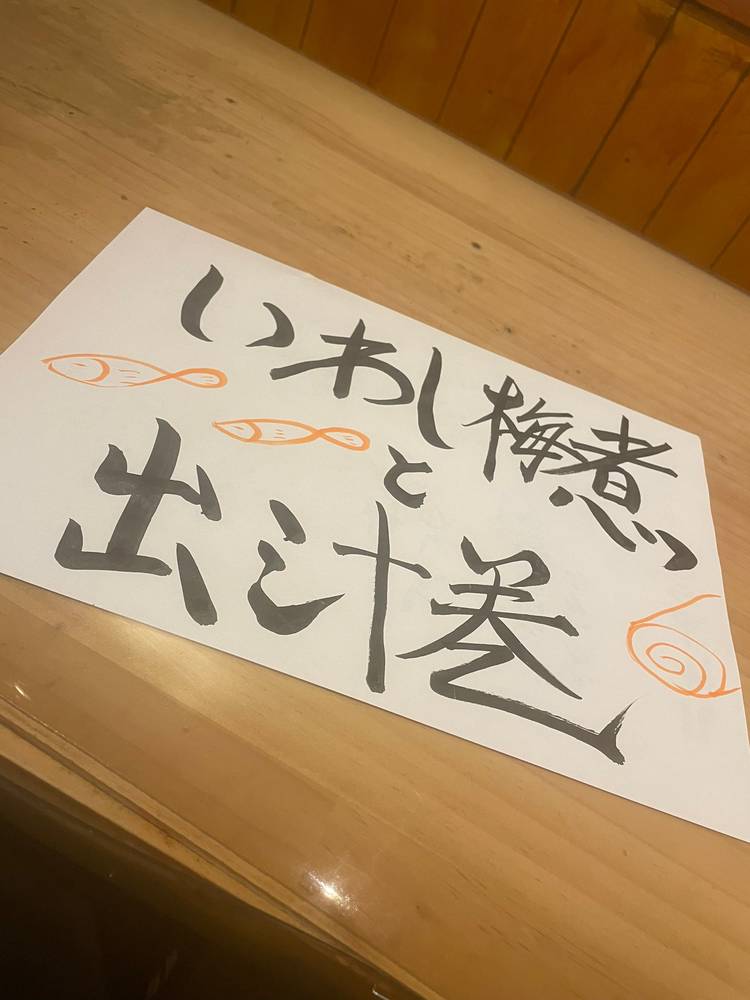 いわし梅煮
と
出汁巻